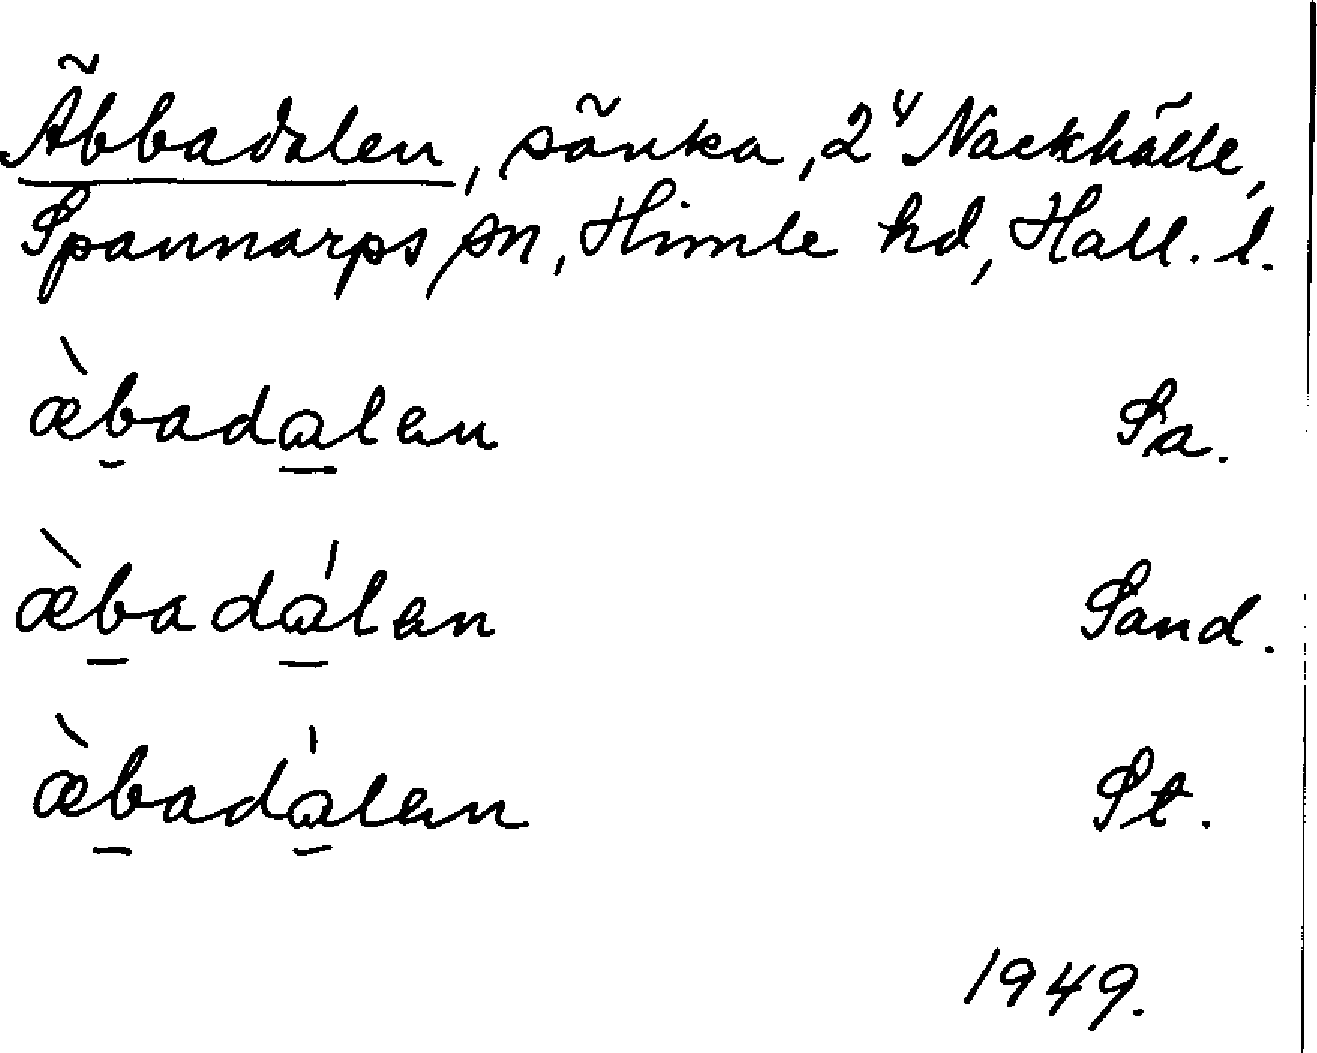 Äbbadalen, sänka, 2⁴ Nackhälle,
Spannarps sn, Himle hd, Hall. l.
æ̀b̲ada̲len Sa.
æ̀b̲adá̲len Sand.
æ̀b̲adá̲len St.
1949.